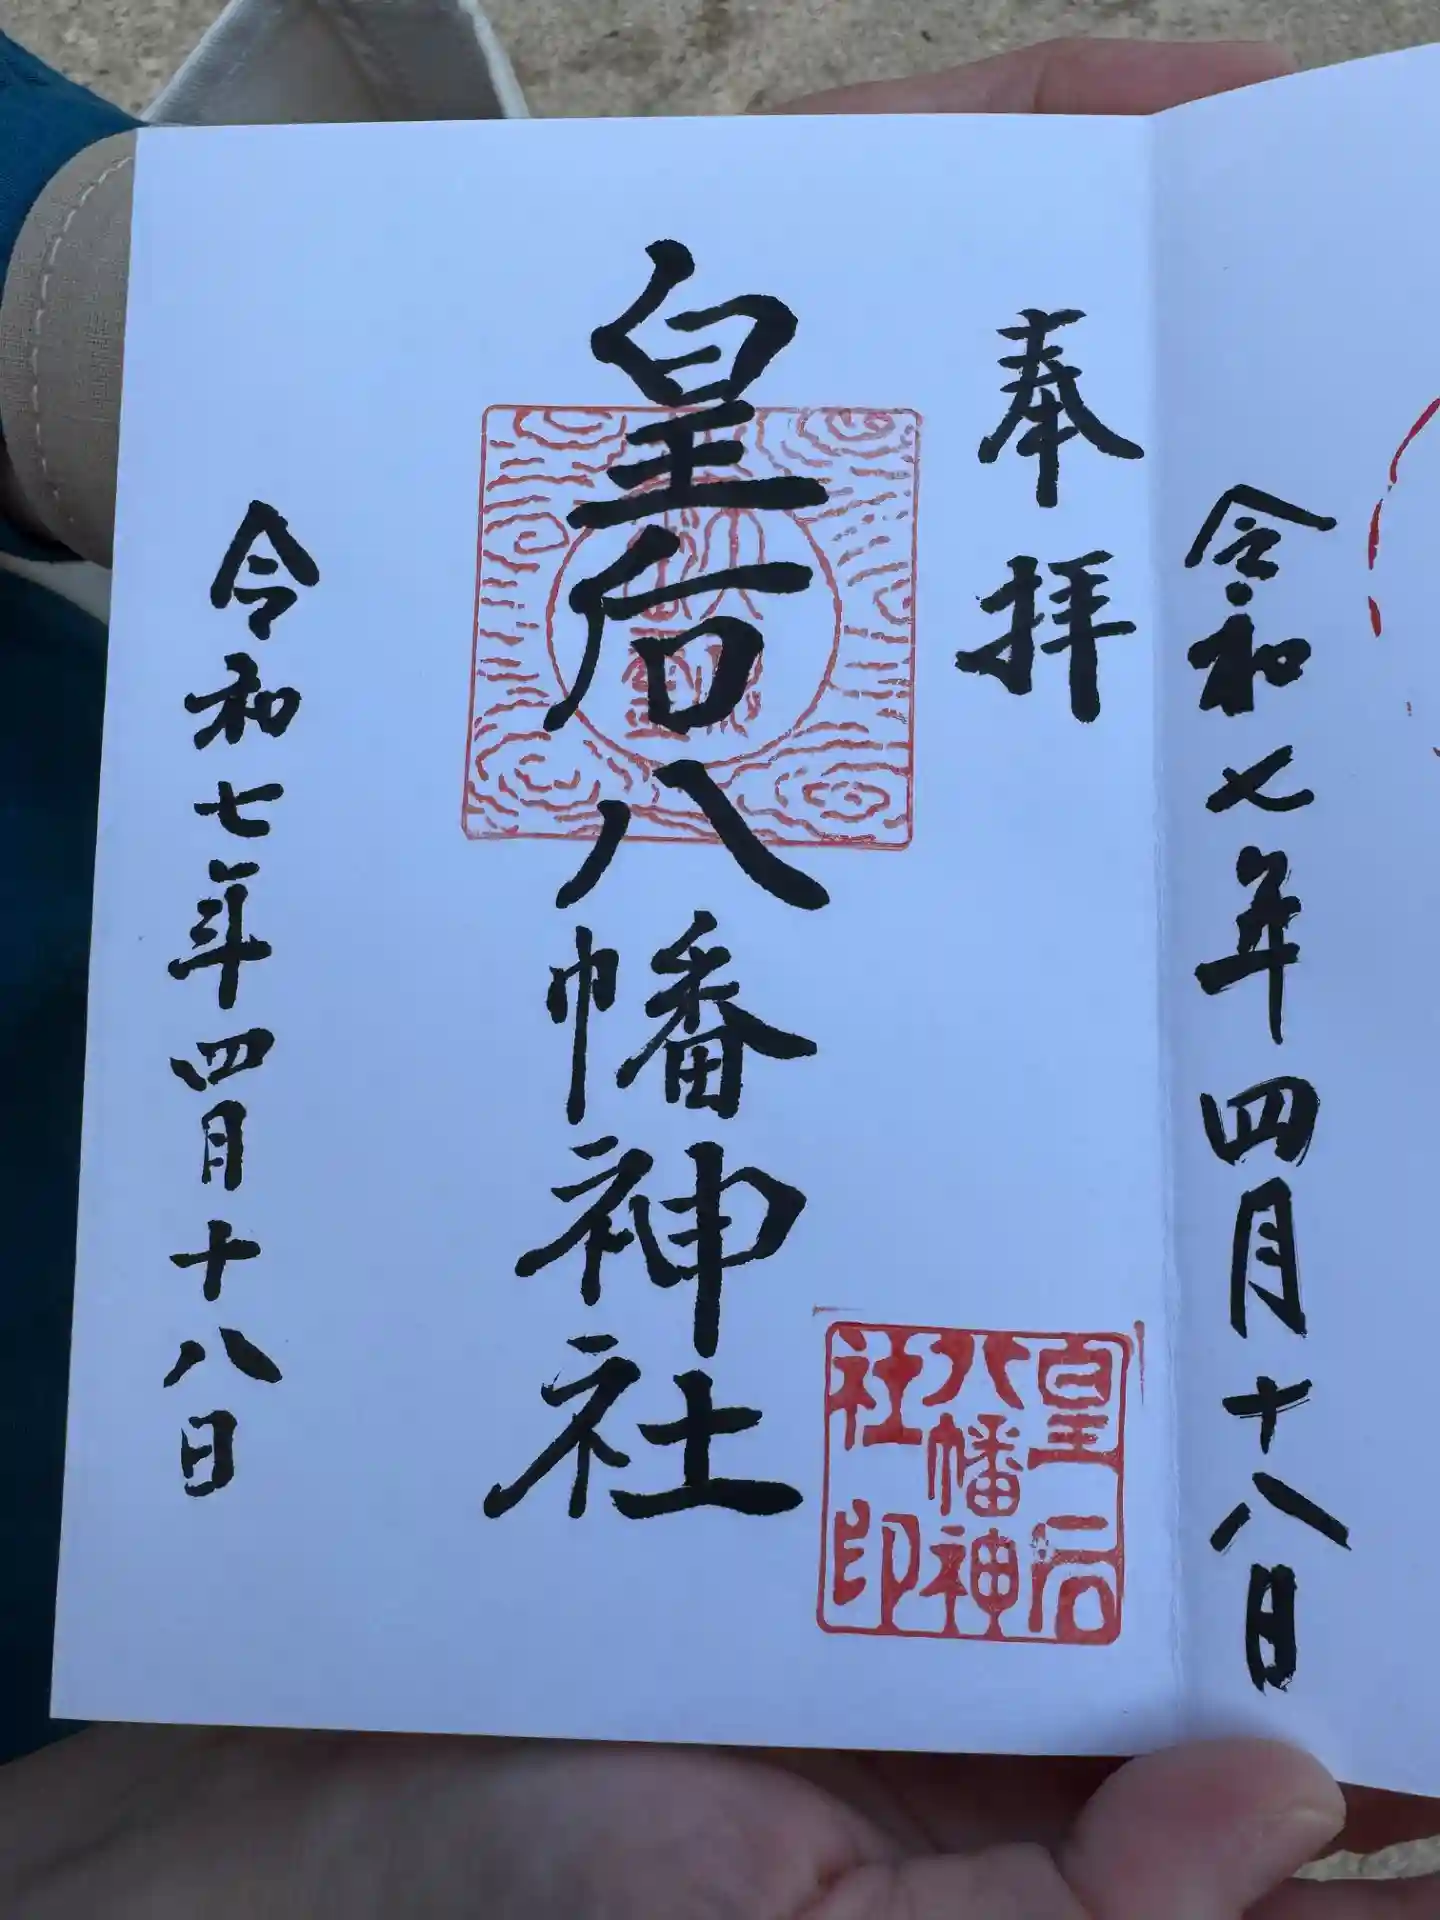 令和七年四月十八日
奉拝
皇后八幡神社
皇后
八幡神
社印
令和七年四月十八日